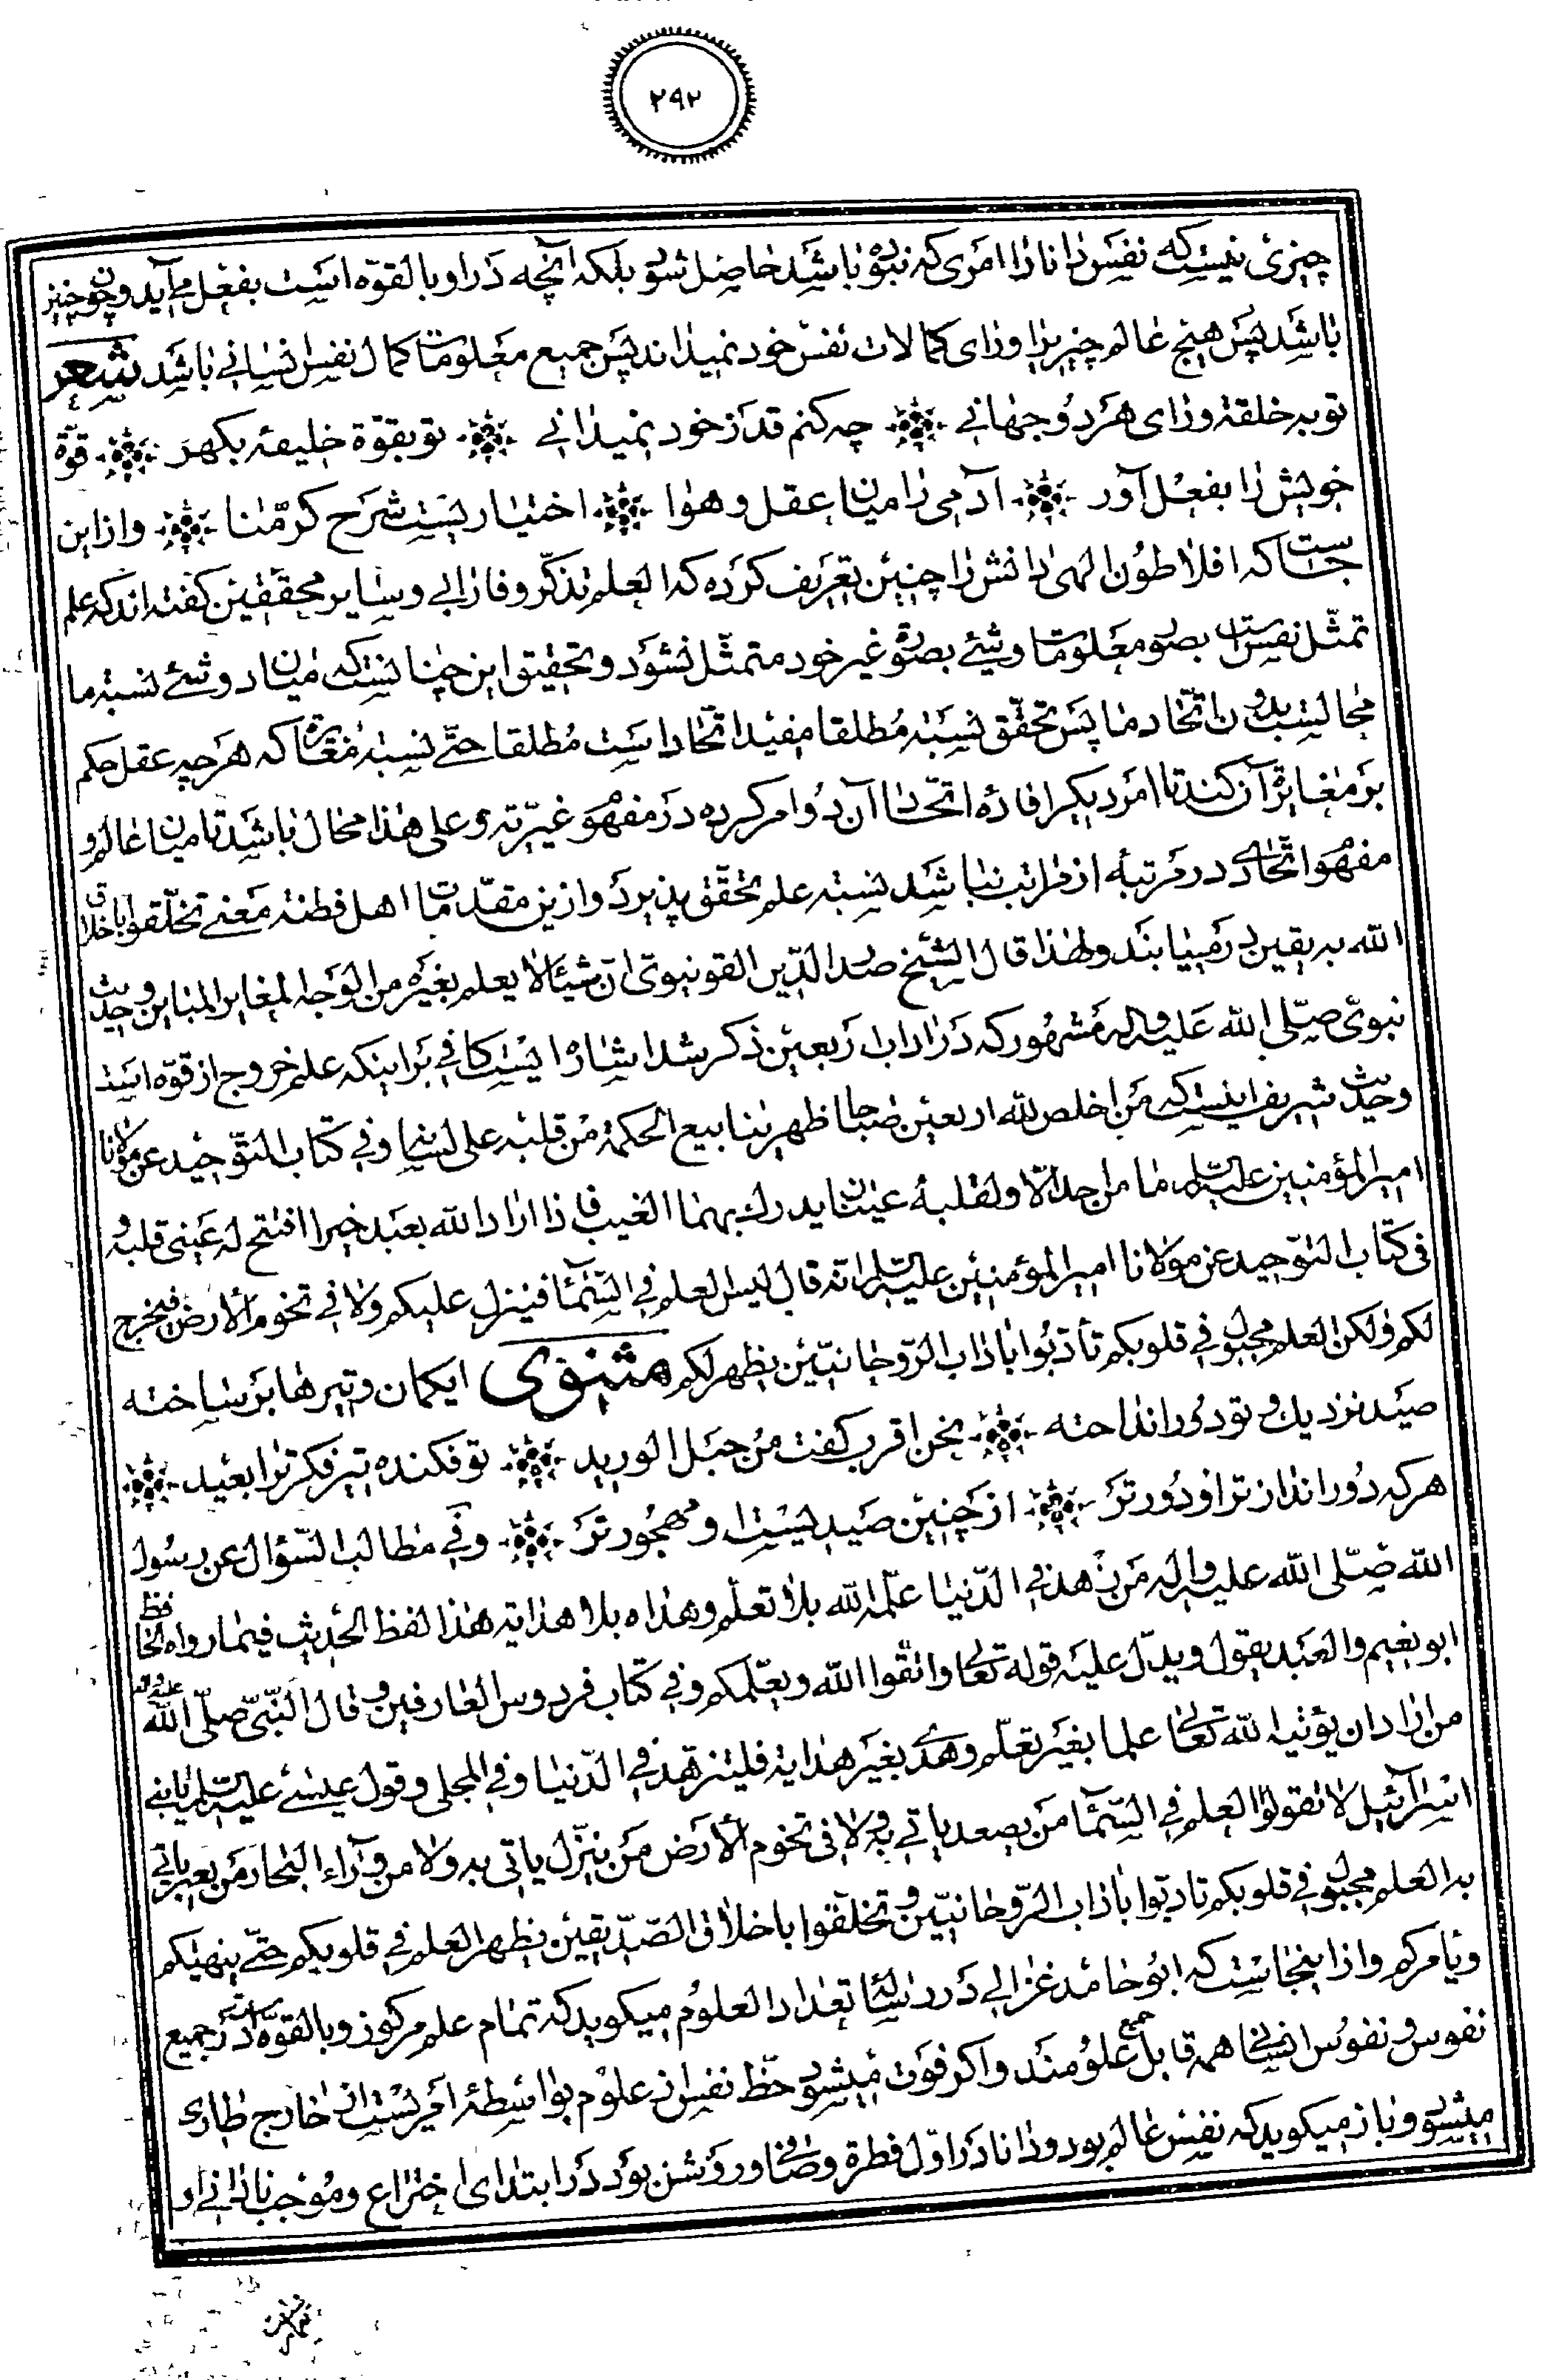 ۲۹۲
چیزی نیست که نفس دانا را امری که نبوده باشد حاصل شود بلکه آنچه در او بالقوّه است بفعل می‌آید و چون چنین
باشد پس هیچ عالم چیزیرا ورای کمالات نفس خود نمیداند پس جمیع معلومات کمال نفس انسانی باشد شعر
توبه خلقت ورای هر دو جهانی چه کنم قدر خود نمیدانی تو بقوّة خلیفه بکهر قوّة
خویش را بفعل آور آدمی را میان عقل و هوا اختیاریست شرح کرّمنا و از این
جاست که افلاطون الهی دانش را چنین تعریف کرده که العلم تذکّر و فارابی و سایر محققین کفته‌اند که علم
تمثّل نفس است بصور معلومات و شیء بصورة غیر خود متمثّل نشود و تحقیق این چنانست که میان دو شیء نسبة ما
محالست بدون اتّحاد ما پس تحقّق نسبة مطلقا مفید اتّحاد است مطلقا حتّی نسبة مغایرة که هر چه عقل حکم
بر مغایرة آن کند با امر دیکر افاده اتّحاد آن دو امر کرده در مفهوم غیریّة و علی هذا محال باشد تا میان عالم و
مفهوم اتّحادی در مرتبه از مراتب نباشد نسبة علم تحقّق پذیرد و ازین مقدّمات اهل فطنة معنی تخلّقوا باخلاق
الله به یقین در مییابند و لهذا قال الشیخ صدر الدّین القونیوی انّ شیئا لا یعلم بغیره من الوجه المغایر المباین و حدیث
نبوی صلّی الله علیه و آله مشهور که در آداب اربعین ذکر شد اشاره ایست کافی بر اینکه علم خروج از قوّه است
و حدیث شریف اینست که من اخلص لله اربعین صباحا ظهر ینابیع الحکمة من قلبه علی لسانه و فی کتاب التّوحید عن مولانا
امیر المؤمنین علیه السّلم ما من احد الّا و لقلبه عینان یدرک بهما الغیب فاذا اراد الله بعبد خیرا افتتح له عینی قلبه و
فی کتاب التّوحید عن مولانا امیر المؤمنین علیه السّلم انّه قال لیس العلم فی السّماء فینزل علیکم و لا فی تخوم الأرض فیخرج
لکم و لکن العلم مجبول فی قلوبکم تأدّبوا باداب الرّوحانیّین یظهر لکم مثنوی ایکمان و تیرها بر ساخته
صید نزدیک و تو دور انداخته نحن اقرب کفت من حبل الورید تو فکنده تیر فکرترا بعید
هر که دور اندازتر او دورتر از چنین صید یست او مهجورتر و فی مطالب السّؤال عن رسول
الله صلّی الله علیه و آله من زهد فی الدّنیا علّمه الله بلا تعلّم و هداه بلا هدایة هذا لفظ الحدیث فیما رواه الحافظ
ابو نعیم و العبد یقول و یدلّ علیه قوله تعالی و اتّقوا الله و یعلّمکم و فی کتاب فردوس العارفین و قال النّبیّ صلّی الله علیه و آله
من اراد ان یؤتیه الله تعالی علما بغیر تعلّم و هدی بغیر هدایة فلیزهد فی الدّنیا و فی المجلی و قول عیسی علیه السّلم یا بنی
اسرآئیل لا تقولوا العلم فی السّماء من یصعد یاتی به و لا فی تخوم الأرض من ینزل یاتی به و لا من ورآء البحار من یعبر یاتی
به العلم مجبول فی قلوبکم تادّبوا باداب الرّوحانیّین و تخلّقوا باخلاق الصّدّیقین یظهر العلم فی قلوبکم حتّی ینهیکم
و یامرکم و از اینجاست که ابو حامد غزالی در رساله تعداد العلوم میکوید که تمام علم مرکوز و بالقوّه است در جمیع
نفوس و نفوس انسانی همه قابل جمیع علومند و اکر فوت میشود حظّ نفس از علوم بواسطه امریست از خارج طاری
میشود و باز میکوید که نفس عالم بود و دانا در اوّل فطرة و صافی و روشن بود در ابتدای اختراع و موجب نادانی او